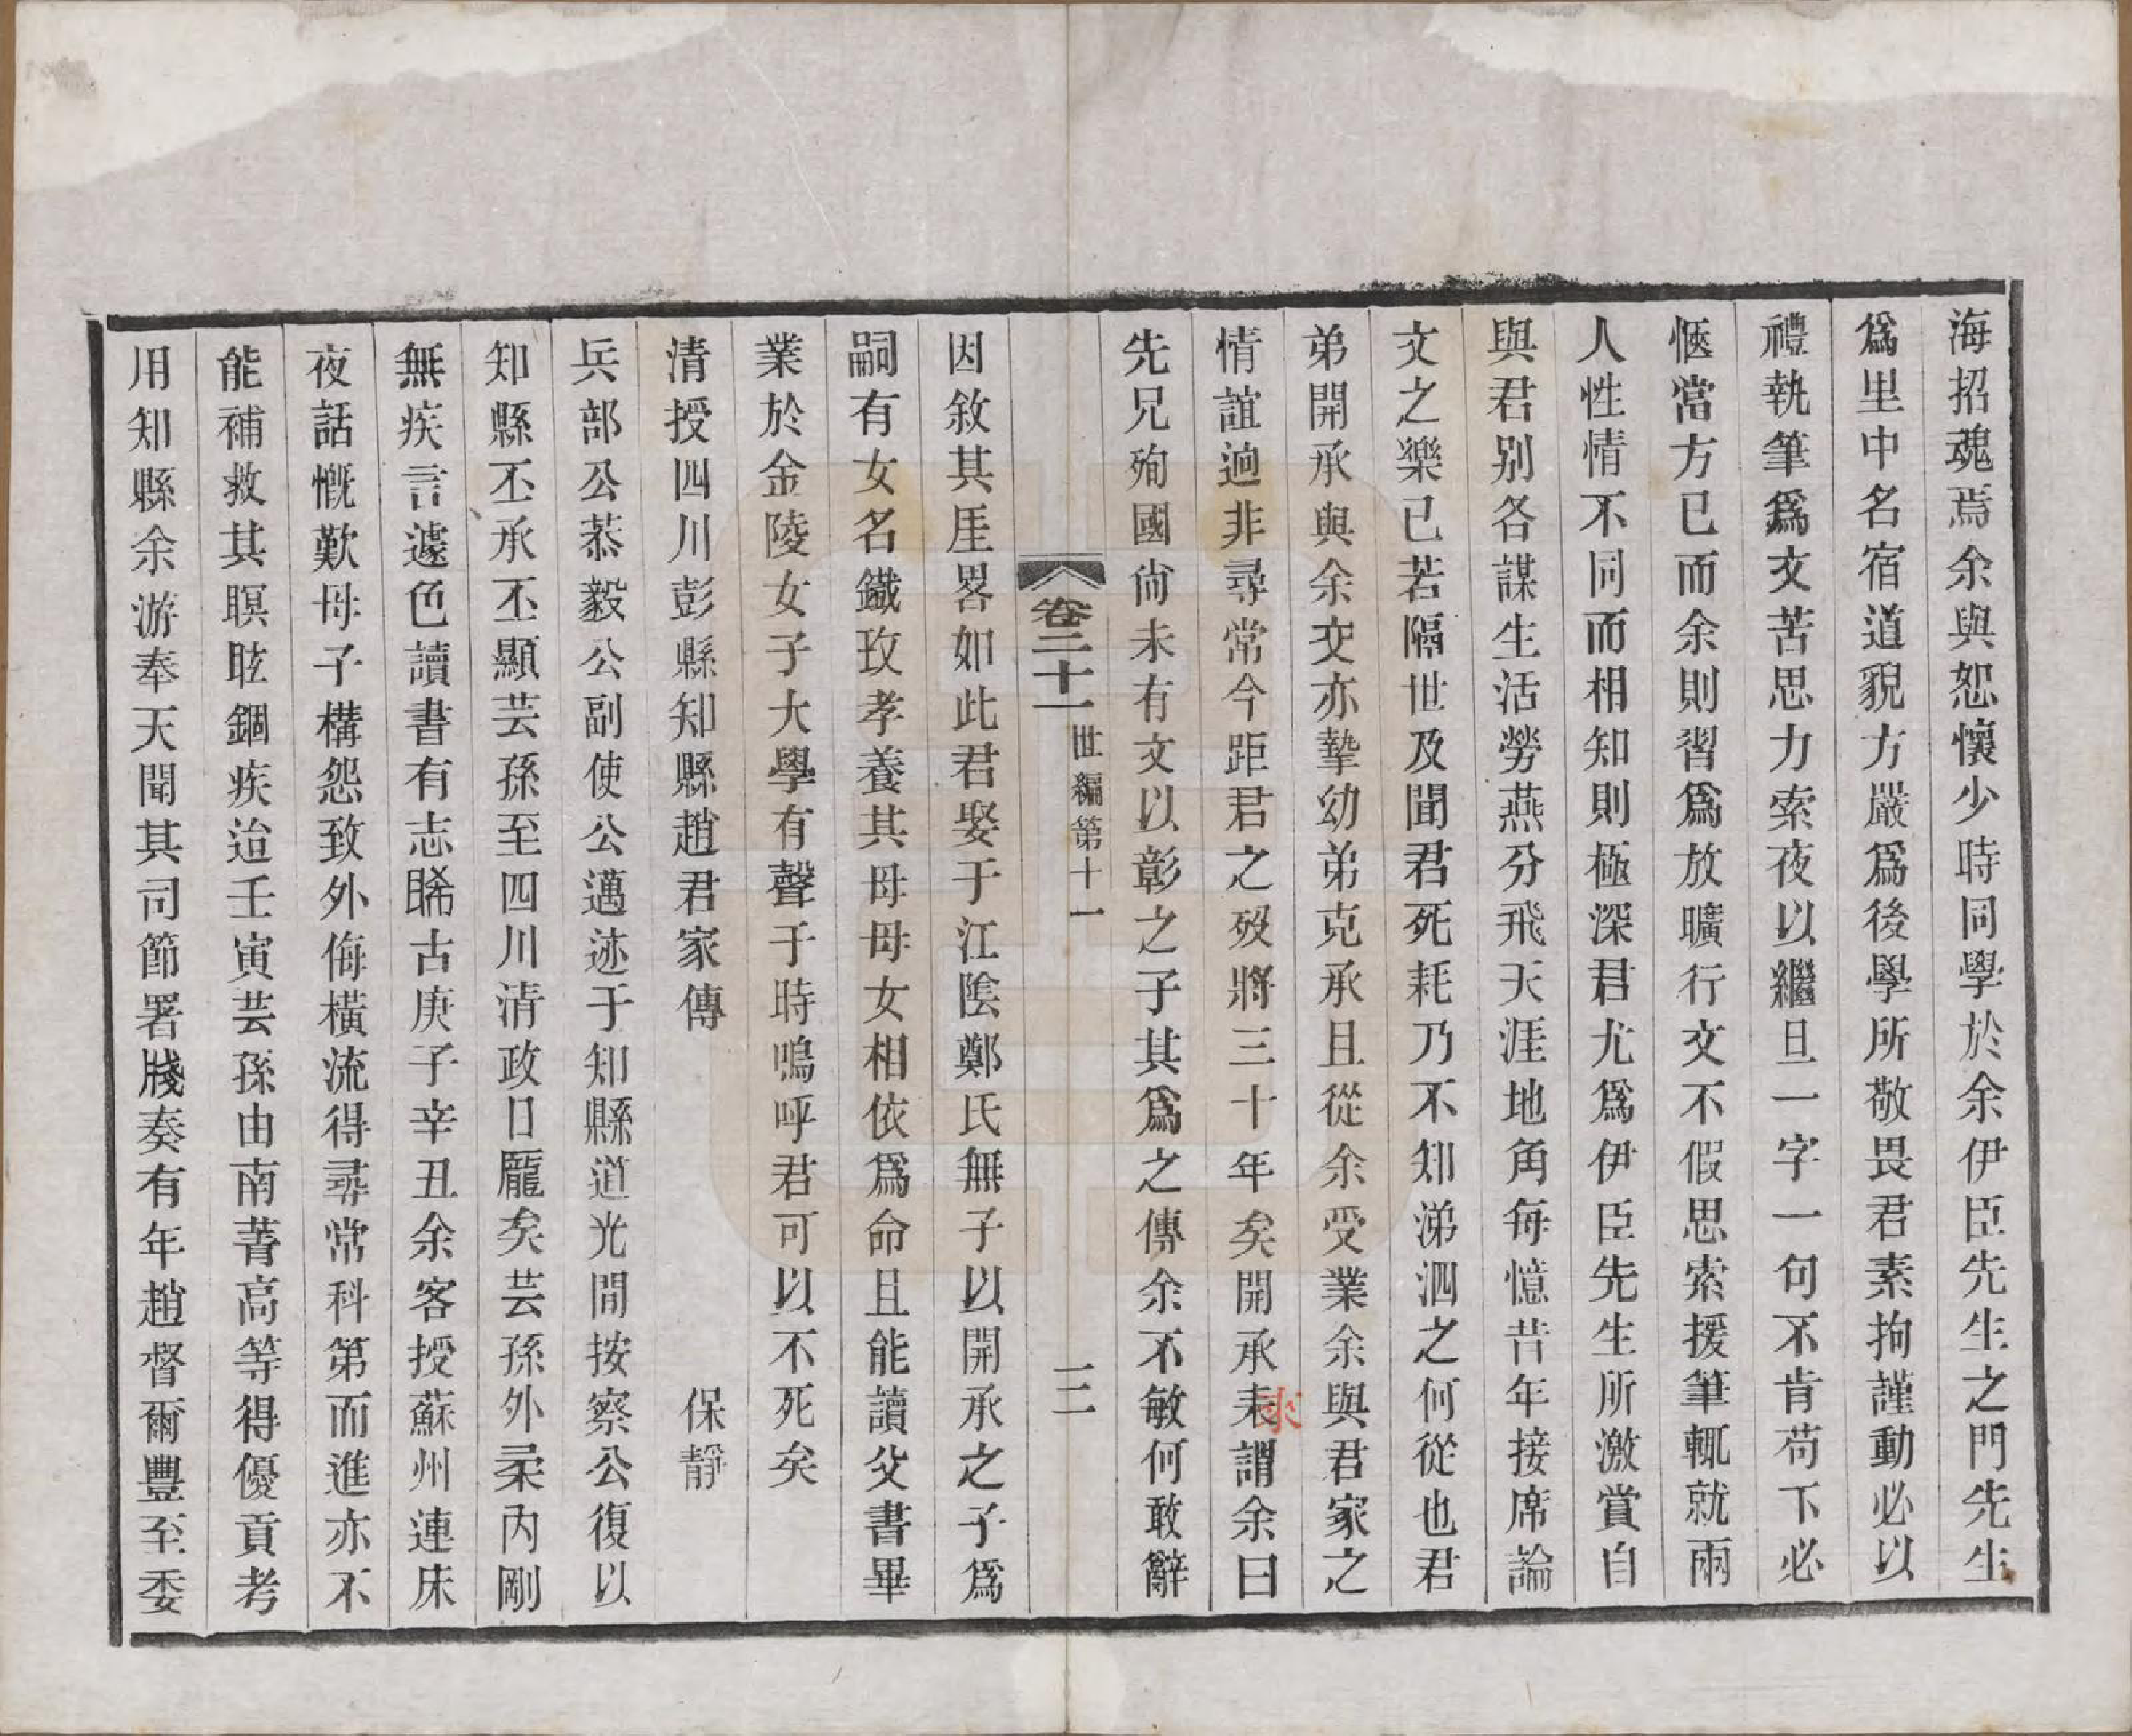 海招魂焉余與恕懷少時同學於余伊臣先生之門先生
爲里中名宿道貌方嚴爲後學所敬畏君素拘謹動必以
禮執筆爲文苦思力索夜以繼旦一字一句不肯苟下必
愜當方已而余則習爲放曠行文不假思索援筆輒就兩
人性情不同而相知則極深君尤爲伊臣先生所激賞自
與君別各謀生活勞燕分飛天涯地角每憶昔年接席論
文之樂已若隔世及聞君死耗乃不知涕泗之何從也君
弟開承與余交亦摯幼弟克承且從余受業余與君家之
情誼迥非尋常今距君之歿將三十年矣開承耒謂余曰
來
先兄殉國尙未有文以彰之子其爲之傳余不敏何敢辭
卷二十一 世編第十一 三
因敘其厓畧如此君娶于江陰鄭氏無子以開承之子爲
嗣有女名鐵玫孝養其母母女相依爲命且能讀父書畢
業於金陵女子大學有聲于時嗚呼君可以不死矣
清授四川彭縣知縣趙君家傳 保靜
兵部公恭毅公副使公邁迹于知縣道光間按察公復以
知縣丕承丕顯芸孫至四川清政日龎矣芸孫外柔內剛
無疾言遽色讀書有志睎古庚子辛丑余客授蘇州連床
夜話慨歎母子構怨致外侮橫流得尋常科第而進亦不
能補救其瞑眩錮疾迨壬寅芸孫由南菁高等得優貢考
用知縣余游奉天聞其司節署牋奏有年趙督爾豐至委